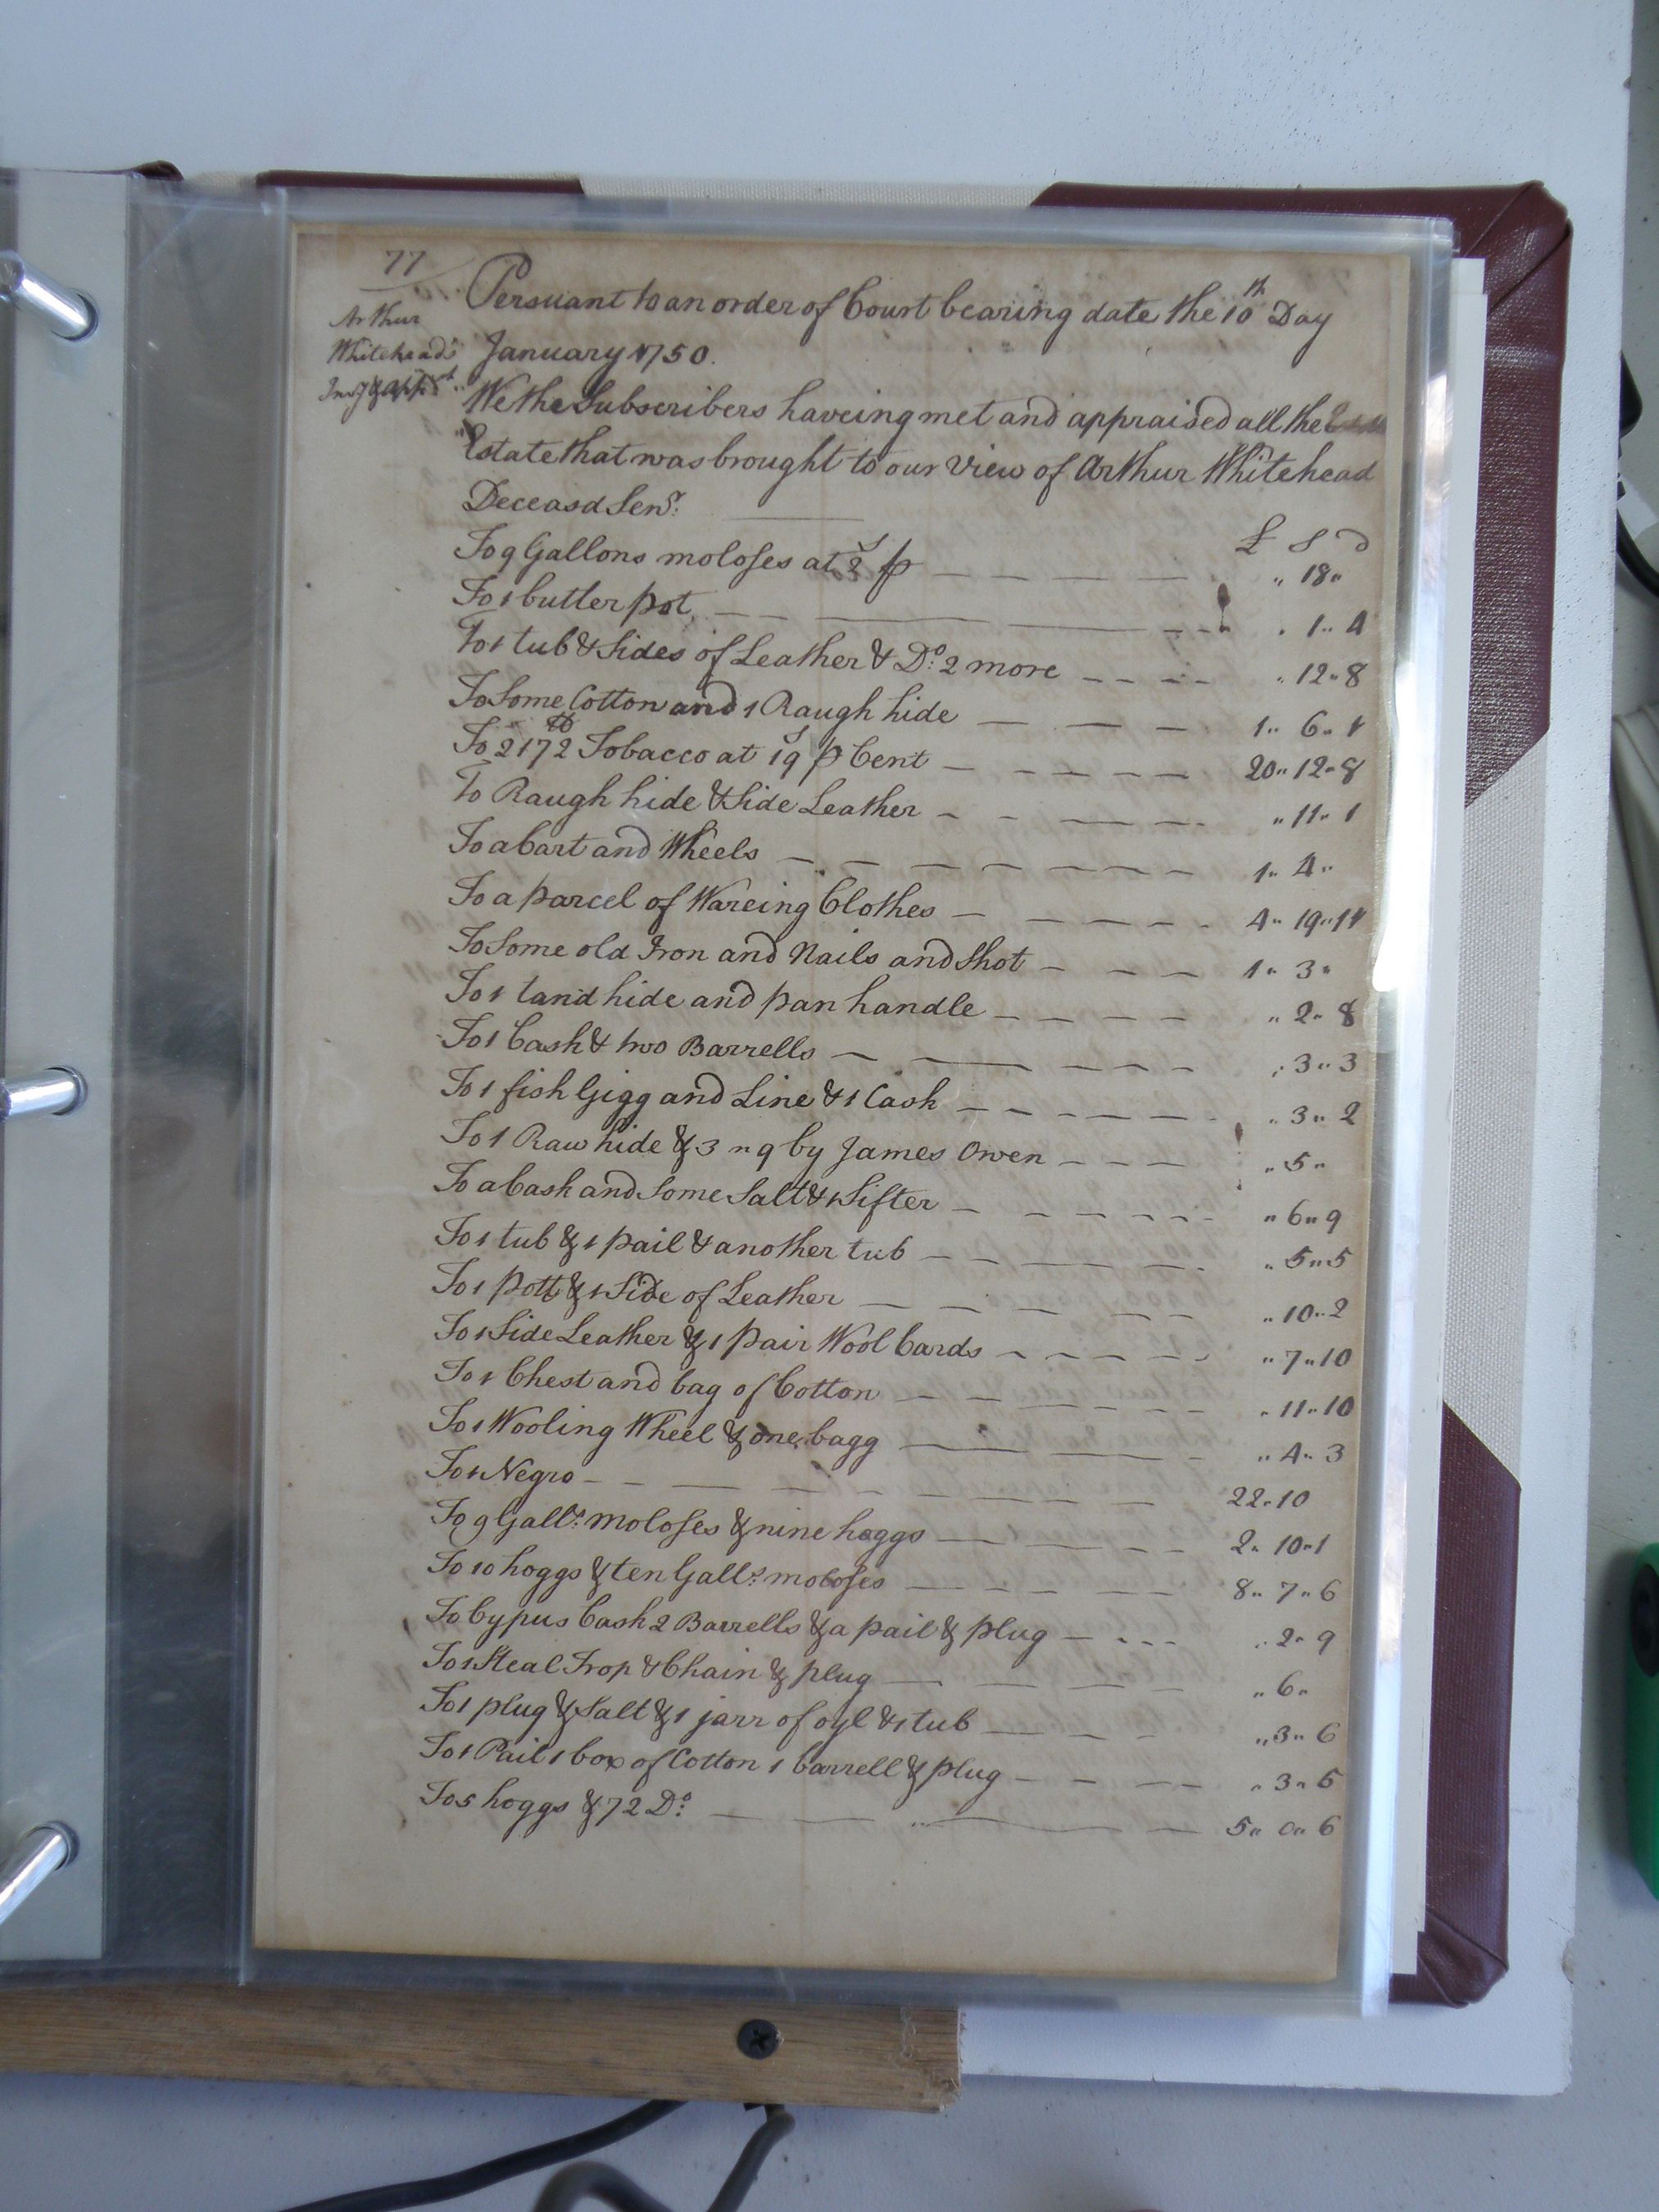 77
Arthur
Whiteheads
Persuant to an order of Court bearing date the 10th Day
January 1750.
We the Subscribers haveing met and appraised all the
Estate that was brought to our View of Arthur Whitehead
Deceasd Senr.
£ S D
To 9 Gallons moloses at 2s p — — — — „ 18 „
To 1 butter pot — — — „ 1 „ 4
To 1 tub & Sides of Leather & Do. 2 more — — — — „ 12 „ 8
To Some Cotton and 1 Raugh hide — — — 1 „ 6 „ 1
To 2172 lb Tobacco at 19s p Cent — — — — — 20 „ 12 „ 8
To Raugh hide & Side Leather — — — — — „ 11 „ 1
To a Cart and Wheels — — — — — — — 1 „ 4 „
To a parcel of Wareing Clothes — — — — — 4 „ 19 „ 11
To Some old Iron and Nails and Shot — — — — 1 „ 3 „
To 1 tand hide and pan handle — — — — — „ 2 „ 8
To 1 Cask & two Barrells — — — — — „ 3 „ 3
To 1 fish Gigg and Line & 1 Cask — — — — — — „ 3 „ 2
To 1 Raw hide & 3 „ 9 by James Owen — — — „ 5 „
To a Cask and Some Salt & 1 Sifter — — — — — — „ 6 „ 9
To 1 tub & 1 pail & another tub — — — — — „ 5 „ 5
To 1 Pott & 1 Side of Leather — — — — — „ 10 „ 2
To 1 Side Leather & 1 pair Wool Cards — — — — — „ 7 „ 10
To 1 Chest and bag of Cotton — — — — — — „ 11 „ 10
To 1 Wooling Wheel & one bagg — — — „ 4 „ 3
To 1 Negro — — — — — — — — — 22 „ 10
To 9 Galls. moloses & nine hoggs — — — — — 2 „ 10 „ 1
To 10 hoggs & ten Galls. moloses — — — — 8 „ 7 „ 6
To Cypus Cask 2 Barrells & a pail & plug — - - - „ 2 „ 9
To 1 Steal Trop & Chain & plug — — — — „ 6 „
To 1 plug & Salt & 1 jarr of oyl & 1 tub — — — — „ 3 „ 6
To 1 Pail 1 box of Cotton 1 barrell & plug — — — — „ 3 „ 5
To 5 hoggs & 72 Do. — — — — 5 „ 0 „ 6